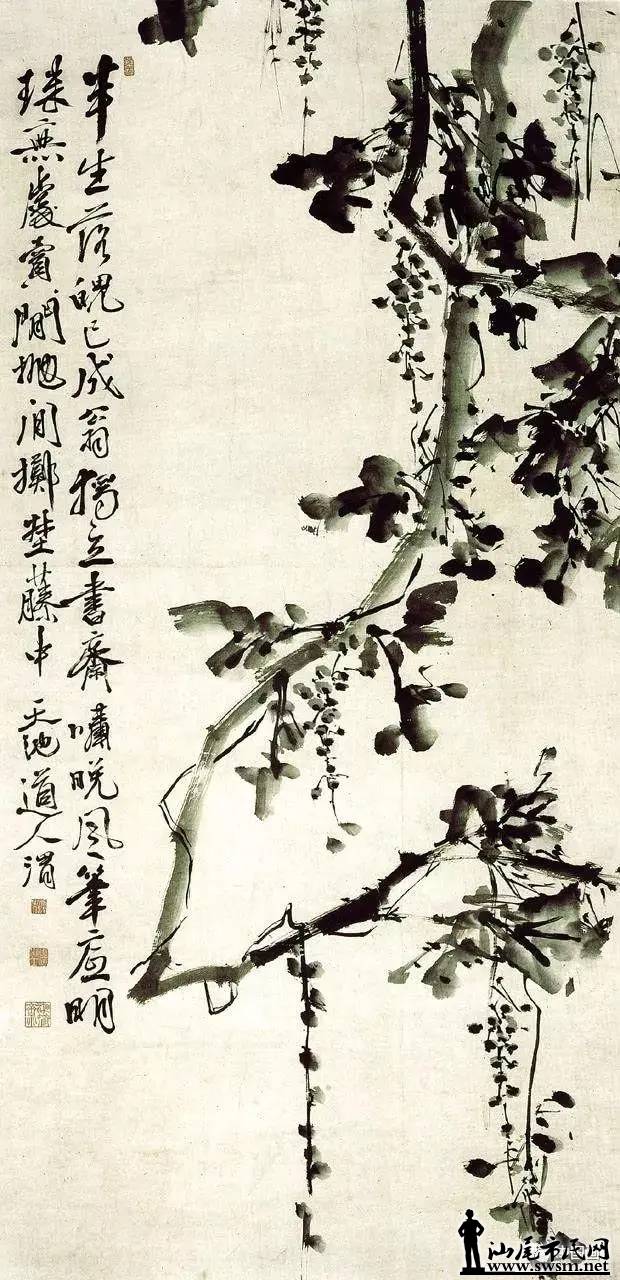 半生落魄已成翁獨立書齋嘯晚風筆底明
珠無處賣閒拋閒擲埜藤中 天池道人渭
汕尾市民网
www.swsm.net